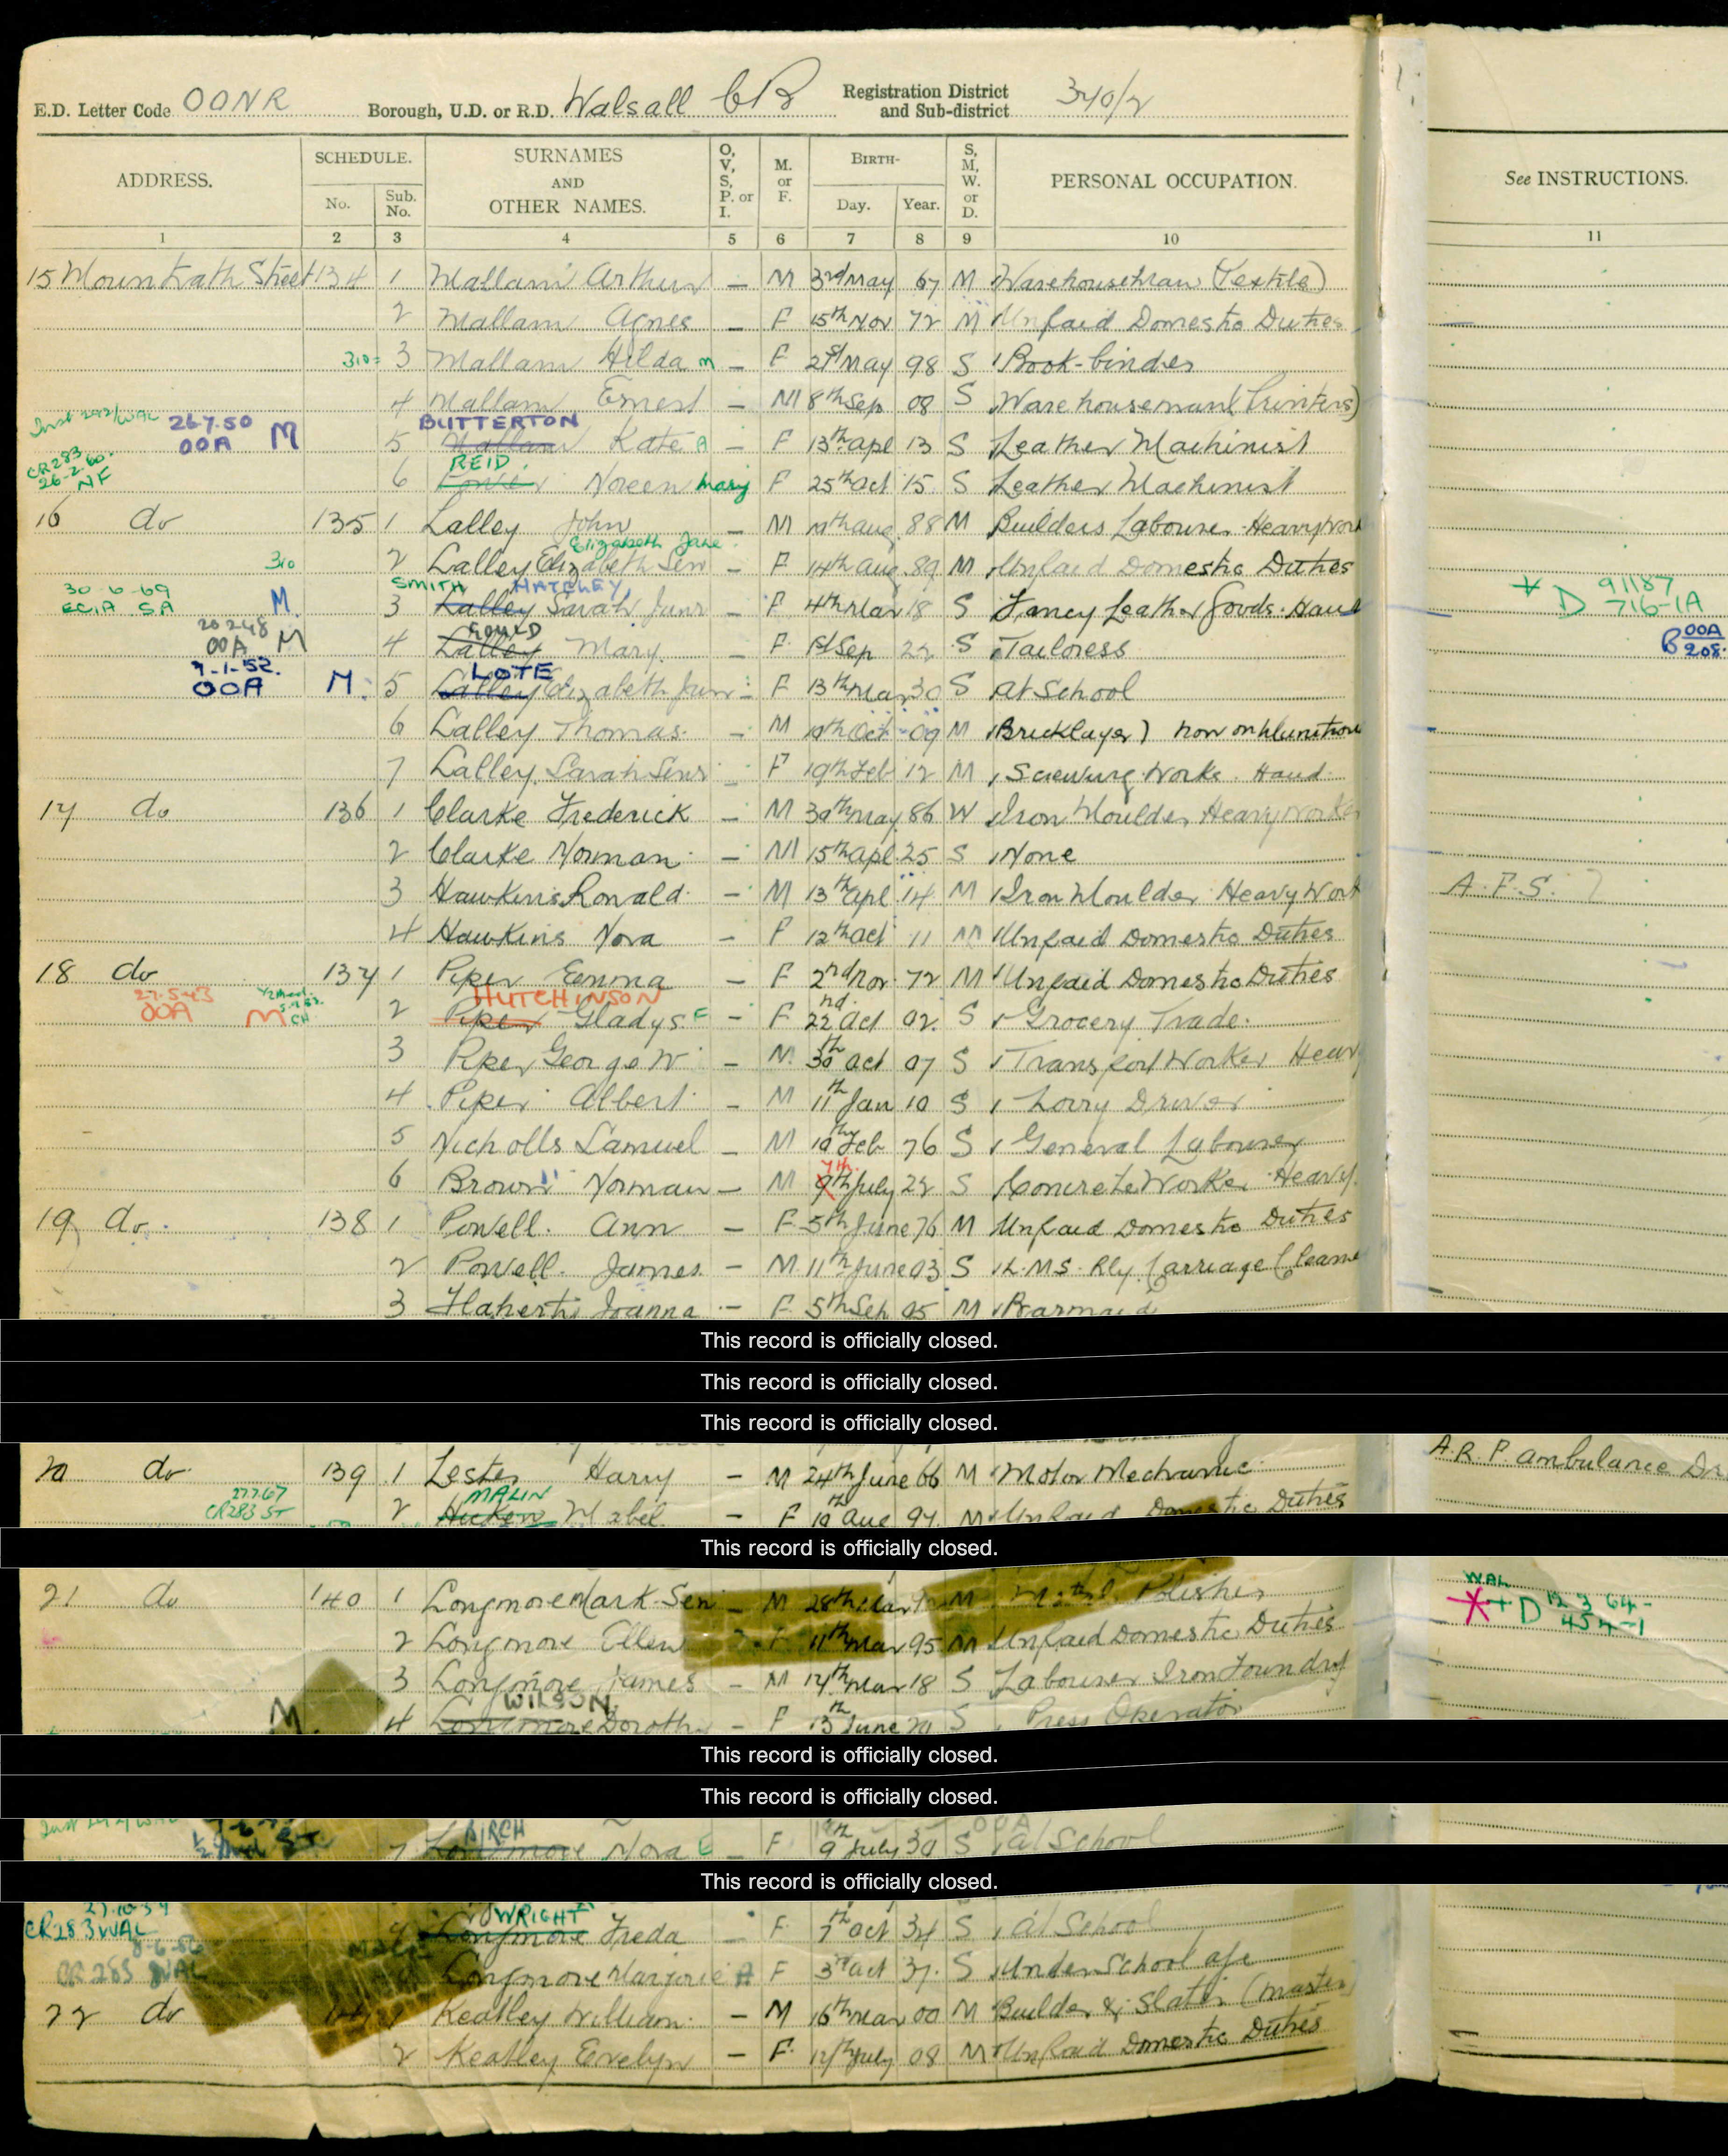 E.D. Letter Code OONR Borough, U.D. or R.D. Walsall CB Registration District and Sub-district 340/2
ADDRESS. SCHEDULE. No. Sub. No. SURNAMES AND OTHER NAMES. O, V, S, P. or I. M. or F. BIRTH- Day. Year. S, M, W. or D. PERSONAL OCCUPATION. See INSTRUCTIONS.
1 2 3 4 5 6 7 8 9 10 11
15 Mountrath Street 134 1 Mallam Arthur — M 3rd May 67 M Warehouseman (Textile)
2 Mallam Agnes — F 15th Nov 72 M Unpaid Domestic Duties
310 3 Mallam Hilda M — F 21st May 98 S Book-binder
4 Mallam Ernest — M 8th Sep 08 S Warehouseman (Printers)
267.50 OOA M BUTTERTON
5 Mallam Kate A — F 13th Apl 13 S Leather Machinist
CR283 26-2-60. NF REID
6 Noreen Mary F 25th Oct 15 S Leather Machinist
16 do 135 1 Lalley John — M Aug 88 M Builders Labourer Heavy Work
Elizabeth Jane
310 2 Lalley Elizabeth Sen — F 14th Aug 89 M Unpaid Domestic Duties
30-6-69 ECIA SA M SMITH HATELEY
3 Lalley Sarah Junr — F 4th Mar 18 S Fancy Leather Goods Hand * D 91187 716-1A
20 2 48 OOA M GOULD
4 Lalley Mary — F 1st Sep 22 S Tailoress B OOA 208.
9-1-52. OOA M. LOTE
5 Lalley Elizabeth Jun — F 13th Mar 30 S At School
6 Lalley Thomas — M 10th Oct 09 M (Bricklayer) now on Munitions
7 Lalley Sarah Senr — F 19th Feb 12 M Screwing Works Hand
17 do 136 1 Clarke Frederick — M 30th May 86 W Iron Moulder Heavy Worker
2 Clarke Norman — M 15th Apl 25 S None
3 Hawkins Ronald — M 13th Apl 14 M Iron Moulder Heavy Work A.F.S.
4 Hawkins Nora — F 12th Oct 11 M Unpaid Domestic Duties
18 do 137 1 Piper Emma — F 2nd Nov 72 M Unpaid Domestic Duties
27.5.43 OOA M HUTCHINSON
2 Piper Gladys E — F 22nd Oct 02 S Grocery Trade
3 Piper George W — M 30th Oct 07 S Transport Worker Heavy
4 Piper Albert — M 11th Jan 10 S Lorry Driver
5 Nicholls Samuel — M 10th Feb 76 S General Labourer
7th
6 Brown Norman — M 9th July 22 S Concrete Worker Heavy
19 do 138 1 Powell Ann — F 5th June 76 M Unpaid Domestic Duties
2 Powell James — M 11th June 03 S L.M.S. Rly Carriage Cleaner
3 Flaherty Joanna — F 5th Sep 05 M Barmaid
This record is officially closed.
This record is officially closed.
This record is officially closed.
20 do 139 1 Lester Harry — M 24th June 66 M Motor Mechanic A.R.P. Ambulance Dr
27.7.67 CR283 ST MALIN
2 Mabel — F 10th Aug 97 M Unpaid Domestic Duties
This record is officially closed.
21 do 140 1 Longmore Mark Sen — M 28th Mar M Metal Polisher WAL *+D 12 3 64- 454-1
2 Longmore Ellen F 11th Mar 95 M Unpaid Domestic Duties
3 Longmore James — M 14th Mar 18 S Labourer Iron Foundry
M. WILSON
4 Longmore Dorothy — F 13th June 20 S Press Operator
This record is officially closed.
This record is officially closed.
BIRCH OOA
7 Longmore Nora E — F 9th July 30 S At School
This record is officially closed.
CR283 WAL WRIGHT
9 Longmore Freda — F 7th Oct 34 S At School
8-6-56 CR 283 WAL Longmore Marjorie A F 3rd Oct 37 S Under School age
22 do 1 Keatley William — M 16th Mar 00 M Builder & Slater (Master)
2 Keatley Evelyn — F 12th July 08 M Unpaid Domestic Duties